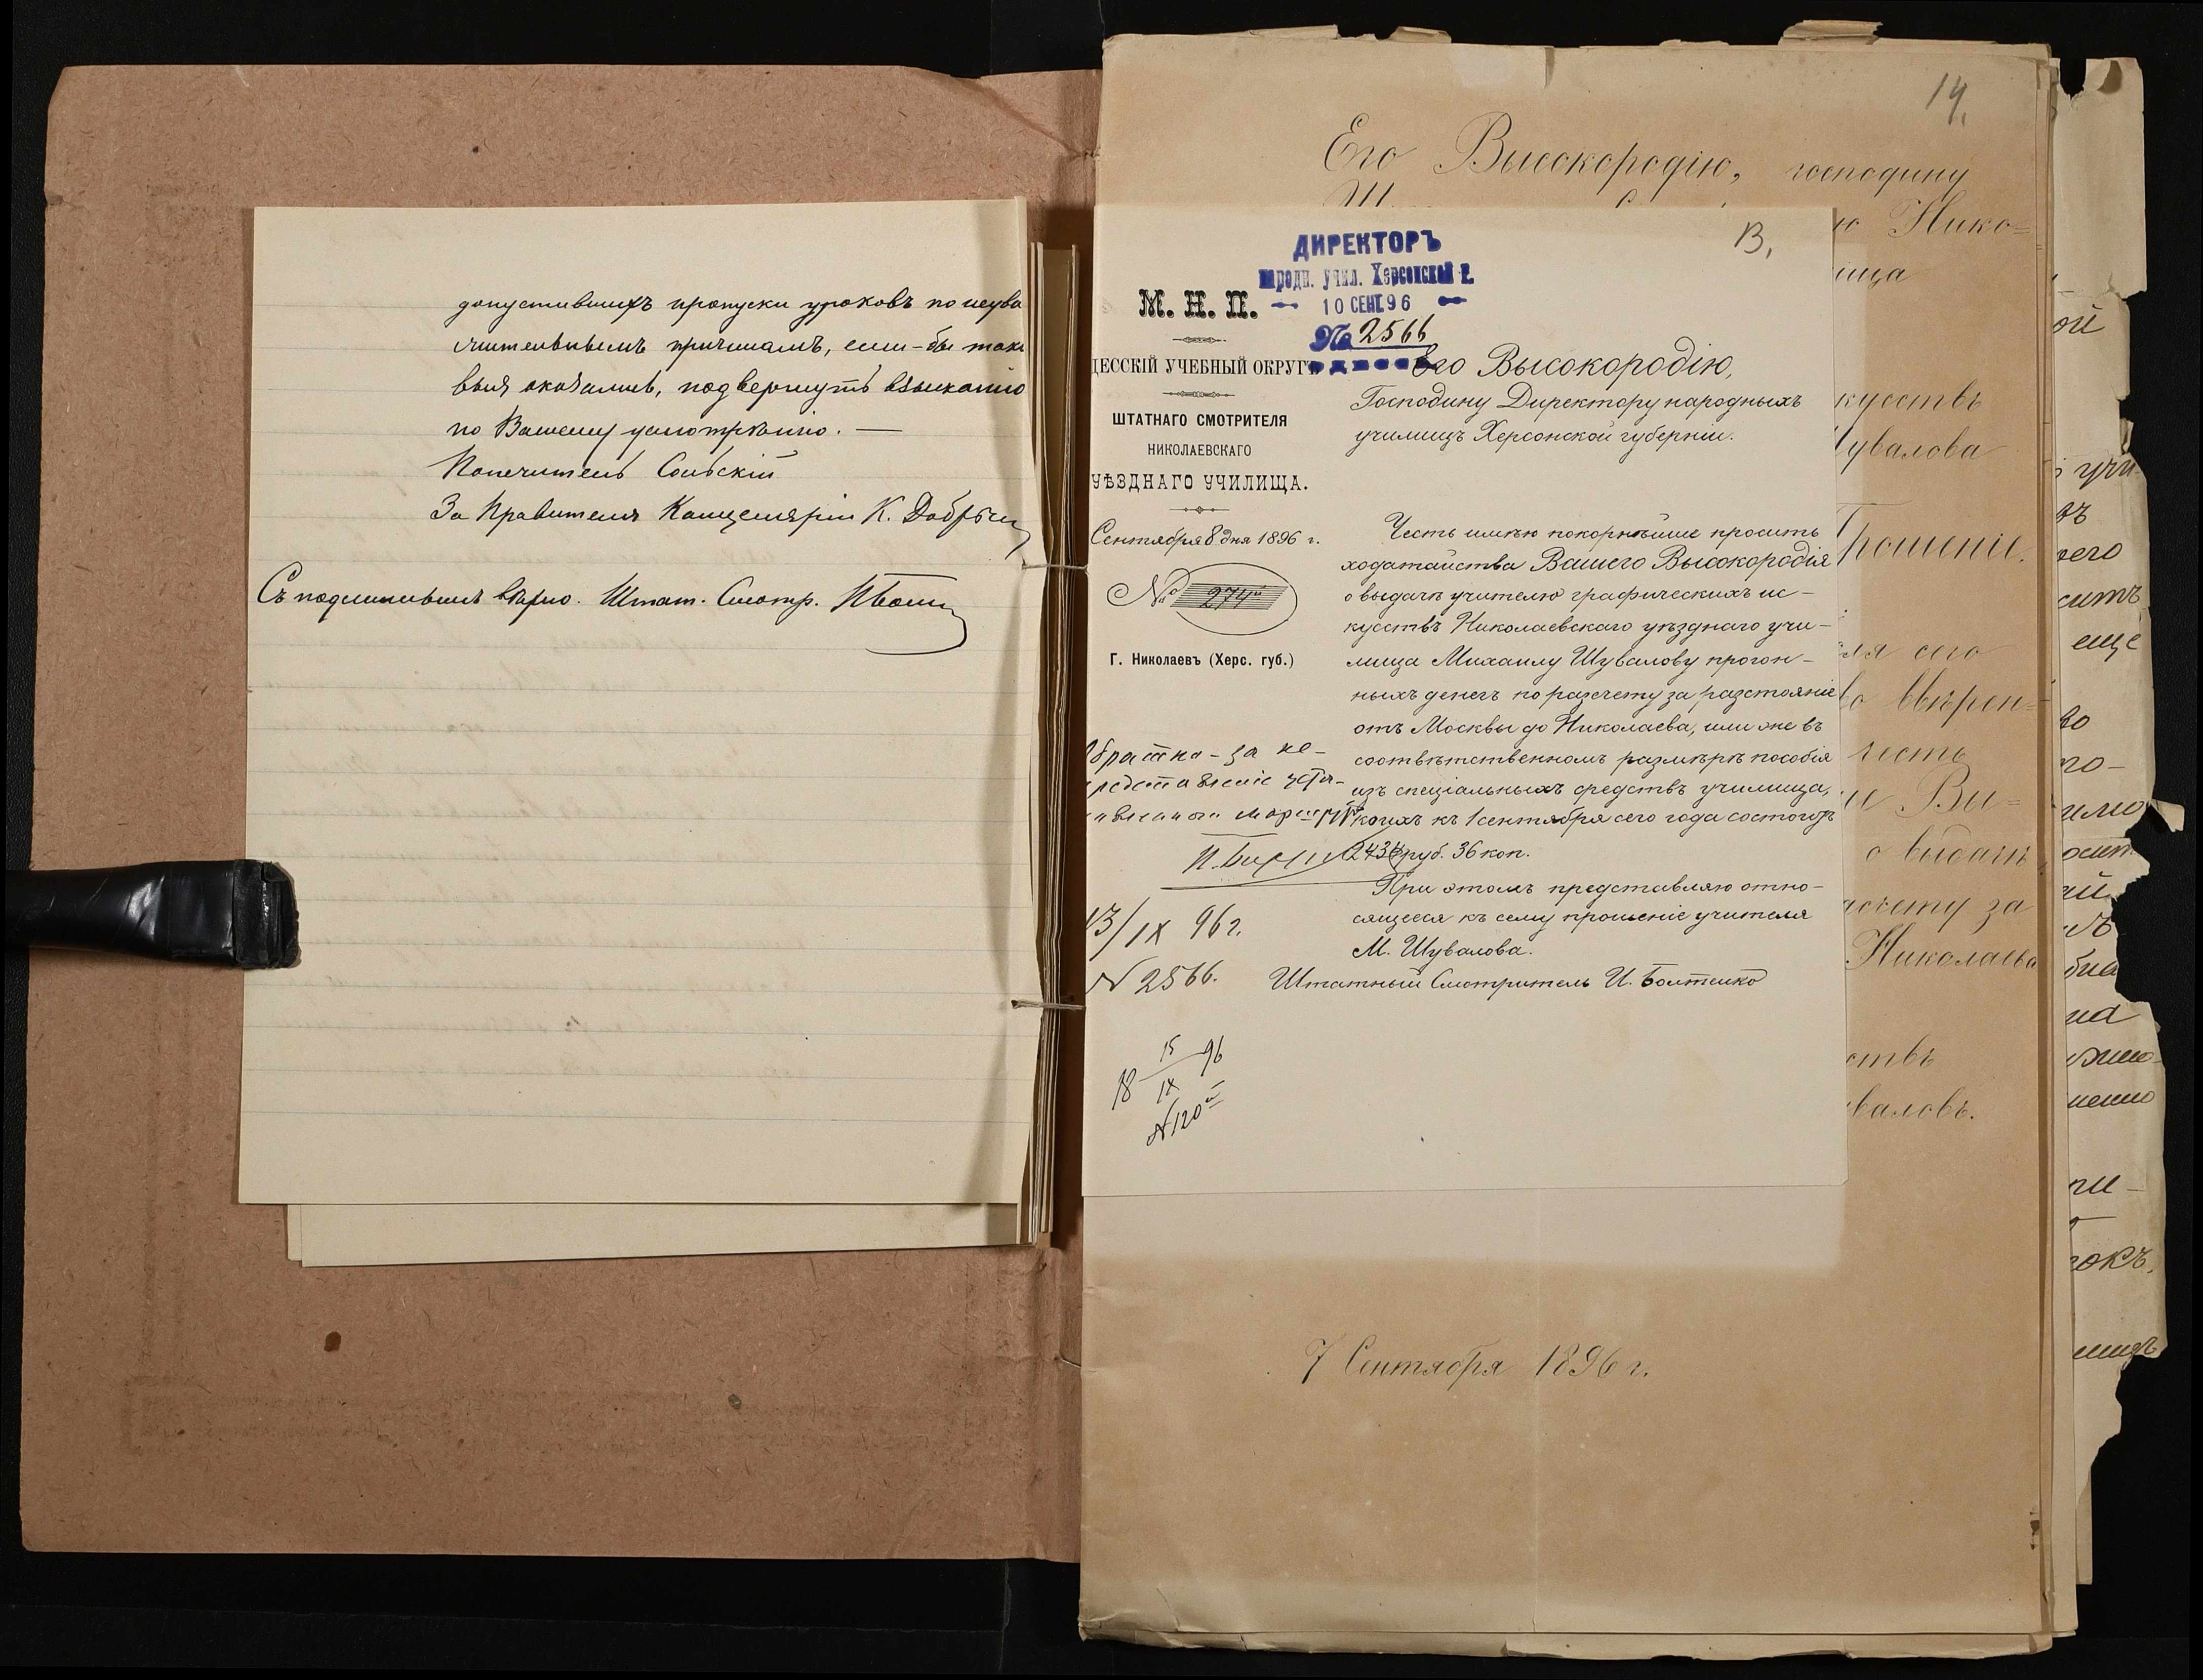 допустившихъ пропуски уроковъ по неува
жительнымъ причинамъ, если-бы тако
выя оказались, подвергнуть взысканію
по Вашему усмотрѣнію. —
Попечитель Сольскій
За Правителя Канцеляріи К.
Съ подлиннымъ вѣрно. Штат. Смотр.
14.
Его Высокородію, господину
ю Нико=
ища
кусствъ
Шувалова
Прошеніе.
ля сего
ввѣрен=
честь
Вы=
о выдачѣ
расчету за
Николаева
ствъ
уваловъ.
7 Сентября 1896 г.
13,
ДИРЕКТОРЪ
народн. учил. Херсонской г.
10 СЕНТ. 96
№ 2566
М. Н. П.
ДЕССКІЙ УЧЕБНЫЙ ОКРУГЪ
ШТАТНАГО СМОТРИТЕЛЯ
НИКОЛАЕВСКАГО
УѢЗДНАГО УЧИЛИЩА.
Сентября 8 дня 1896 г.
№ 274
Г. Николаевъ (Херс. губ.)
Его Высокородію,
Господину Директору народныхъ
училищъ Херсонской губерніи.
Честь имѣю покорнѣйше просить
ходатайства Вашего Высокородія
о выдачѣ учителю графическихъ ис-
кусствъ Николаевскаго уѣзднаго учи-
лища Михаилу Шувалову прогон-
ныхъ денегъ по разсчету за разстояніе
отъ Москвы до Николаева, или же въ
соотвѣтственномъ размѣрѣ пособія
изъ спеціальныхъ средствъ училища,
коихъ къ 1 сентября сего года состоитъ
2434 руб. 36 коп.
При этомъ представляю отно-
сящееся къ сему прошеніе учителя
М. Шувалова.
Штатный Смотритель И. Болтенко
братно - за не-
13/IX 96 г.
N 2566.
18 15/IX 96
N 120
еще